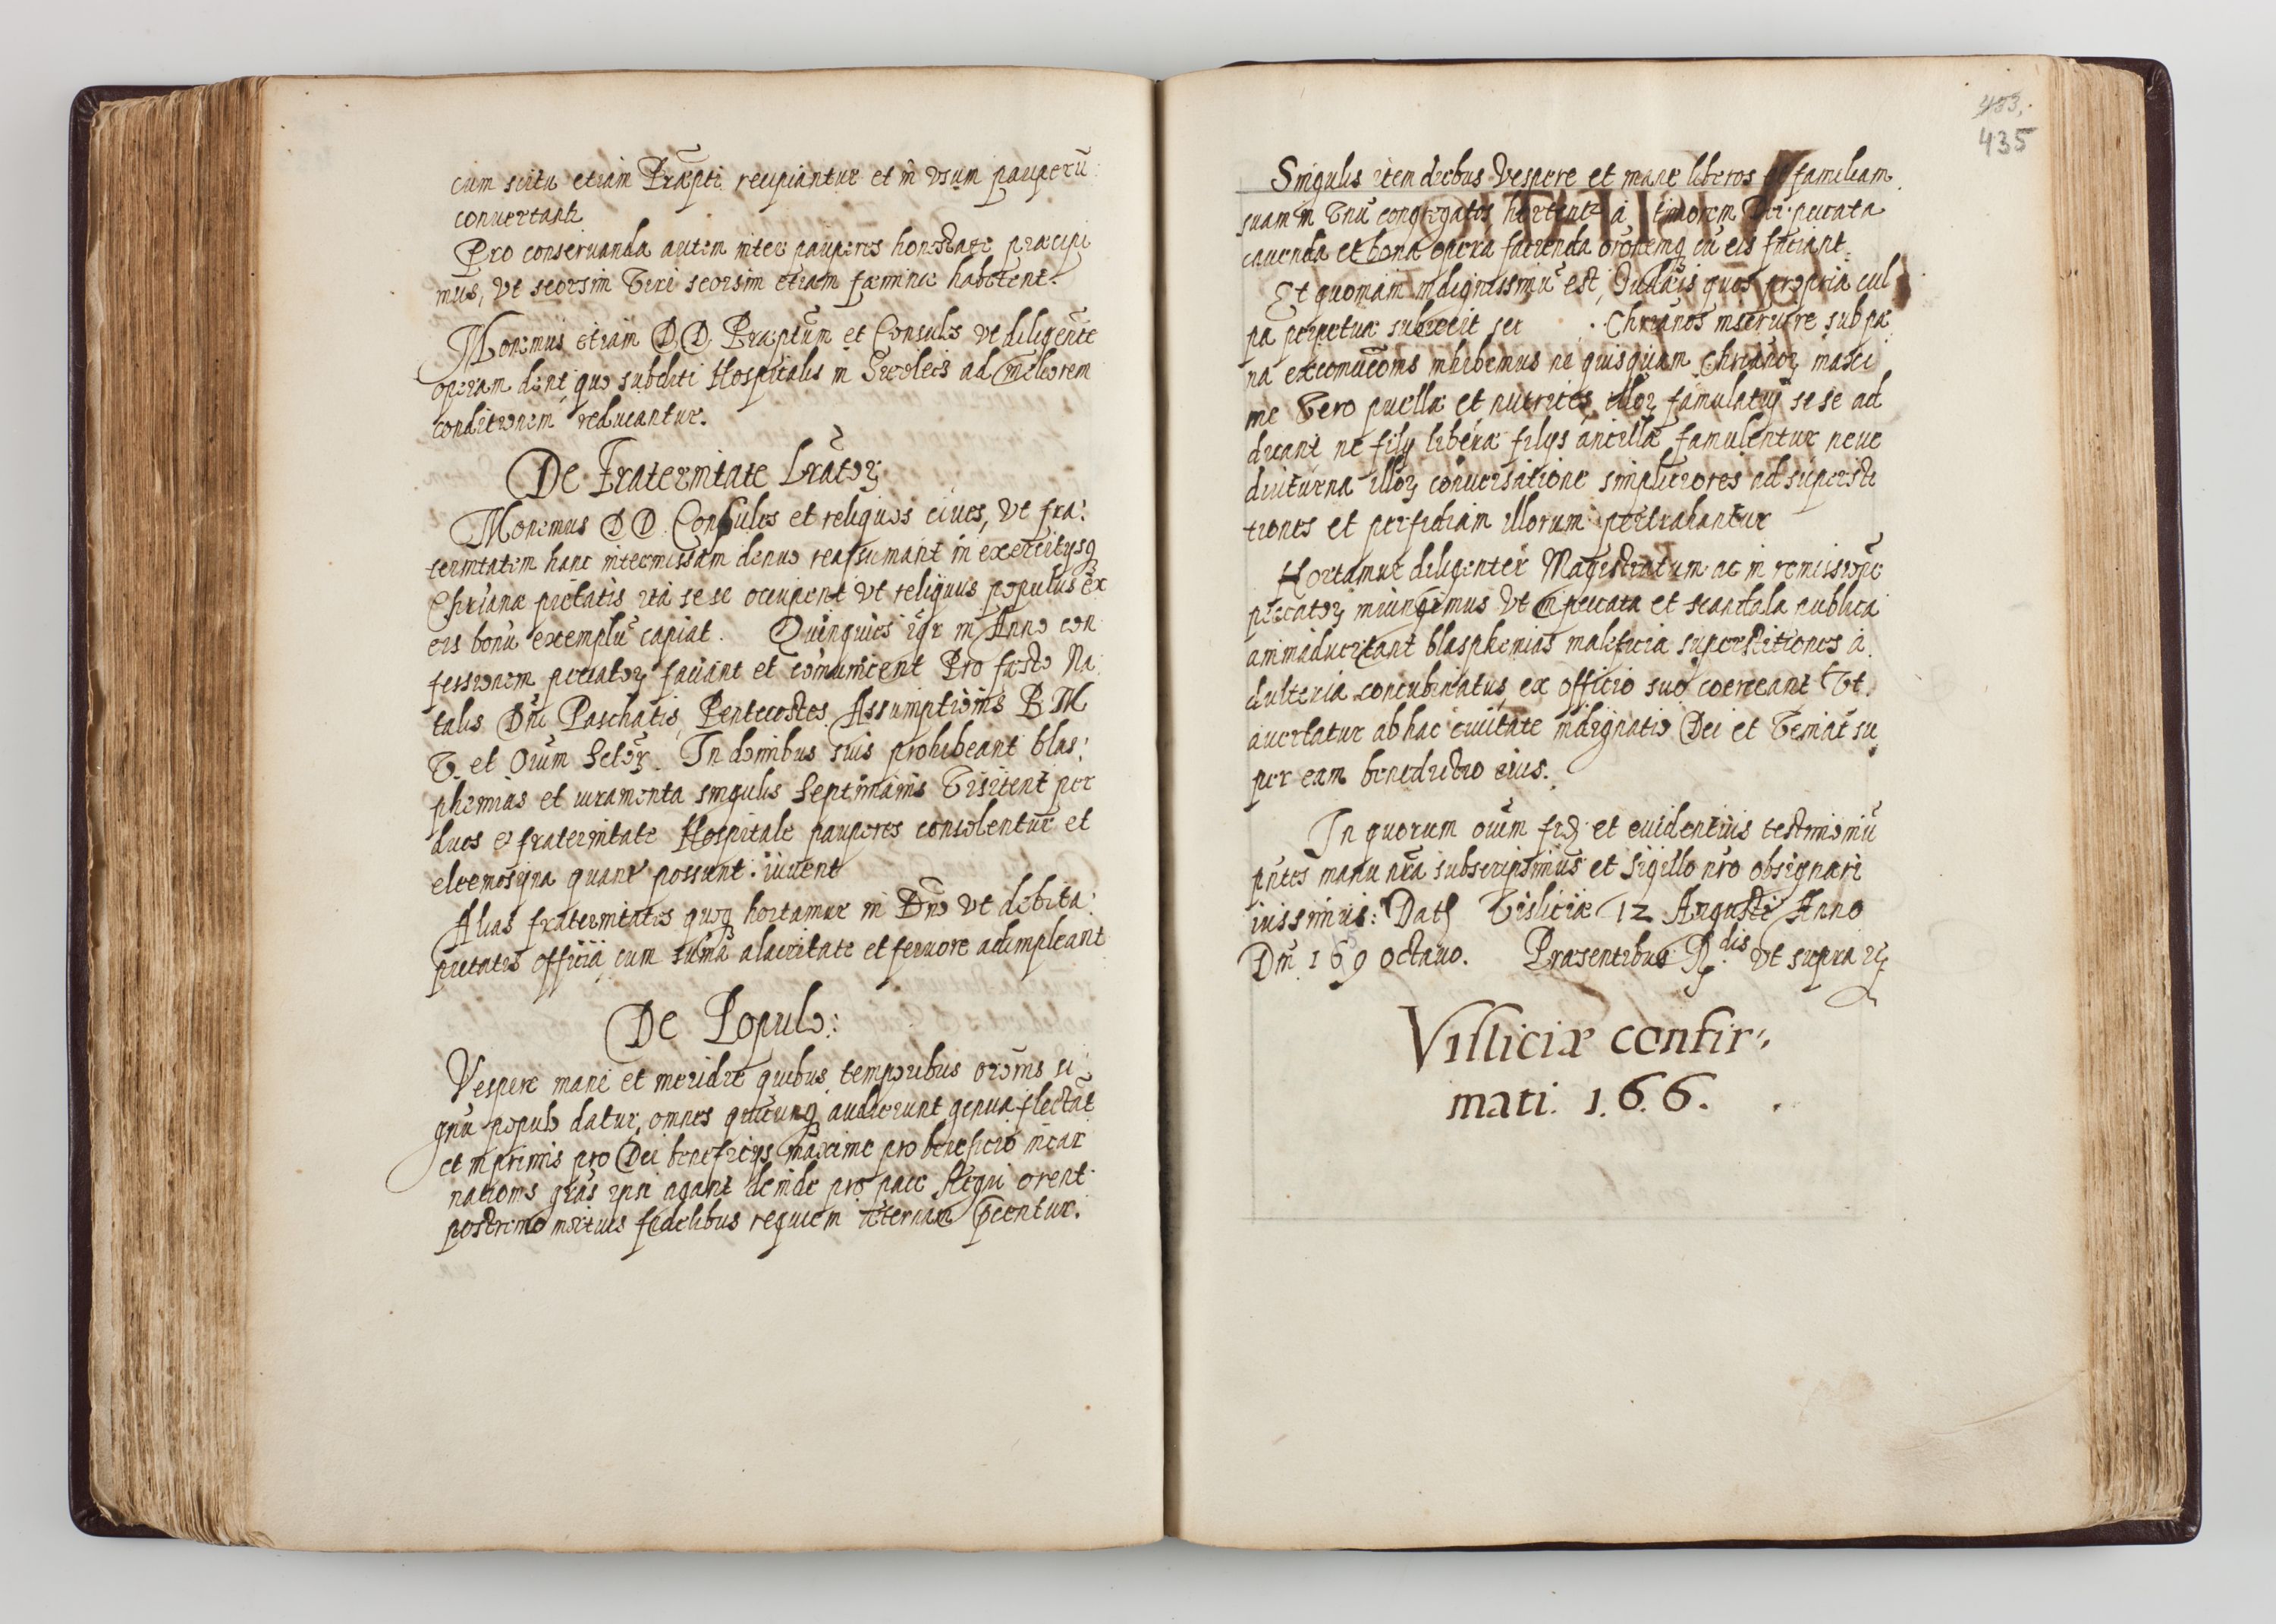 cum scitu etiam Præpti recipiantur et in vsum pauperũ
conuertantr
Pro conseruanda autem inter pauperes honestate præcipi
mus, vt seorsim viri seorsim etiam fæminæ habitent.
Monemus etiam D.D. Præptum et Consules vt diligente
operam dent, quo subditi Hospitalis in ad meliorem
conditionem reducantur.
De Fraternitate
Monemus DD Consules et reliquos ciues, vt fra:
ternitatem hanc intermissam denuo reassumant in exercitysq
Chrianæ pietatis ita sese occupent vt reliquus populus ex
eis bonũ exemplũ capiat. Quinquies igr in Anno con
fessionem peccator faciant et comunicent Pro festo Na
talis Dni Paschatis, Pentecostes Assumptionis B M
V. et Oium Sctor. In domibus suis prohibeant blas:
phemias et iuramenta singulis Septimanis visitent per
duos e fraternitate Hospitale pauperes consolentur et
eleemosyna quant possunt iuuent
Alias fraternitates quoq hortamur in Dno vt debita
pietatis officia cum suma alacritate et feruore adimpleant
De Populo:
Vespere mane et meridie quibus temporibus orõnis si
gnũ populo datur, omnes quicunq audierunt genua flectãt
et inprimis pro Dei beneficijs maxime pro beneficio incar
nationis grãs ipsi agant deinde pro pace Regni orent
postremo mortuis fidelibus requiem æternam pcentur.
433.
435
Singulis item diebus Vespere et mane liberos et familiam
suam in vnũ congregatos hortentr a timorem Dei peccata
cauenda et bona opera facienda orõnemq cũ eis faciant.
Et quoniam indignissimũ est, Iudæis quos propria cul
pa perpetuæ subiecit ser Chrianos inseruire sub pæ
na excomũcõnis inhibemus ne quisquam Chrianor maxi
me vero puellæ et nutrices illor famulatuj sese ad
dicant ne filij liberæ filijs ancillæ famulentur neue
diuturna illor conuersatione simpliciores ad supersti
tiones et perfidiam illorum pertrahantur
Hortamur diligenter Magistratum ac in remissionẽ
peccator iniungimus vt in peccata et scandala publica
animaduertant blasphemias maleficia superstitiones a
dulteria concubinatus ex officio suo coerceant vt
auertatur ab hac ciuitate indignatio Dei et veniat su
per eam benedictio eius.
In quorum oium fid et euidentius testimoniũ
pntes manu nra subscripsimus et Sigillo nro obsignari
iussimus: Dat Visliciæ 12 Augusti Anno
Dni 169 octauo. Præsentibus Rdis vt supra
Visliciæ confir:
mati. 1.6.6.